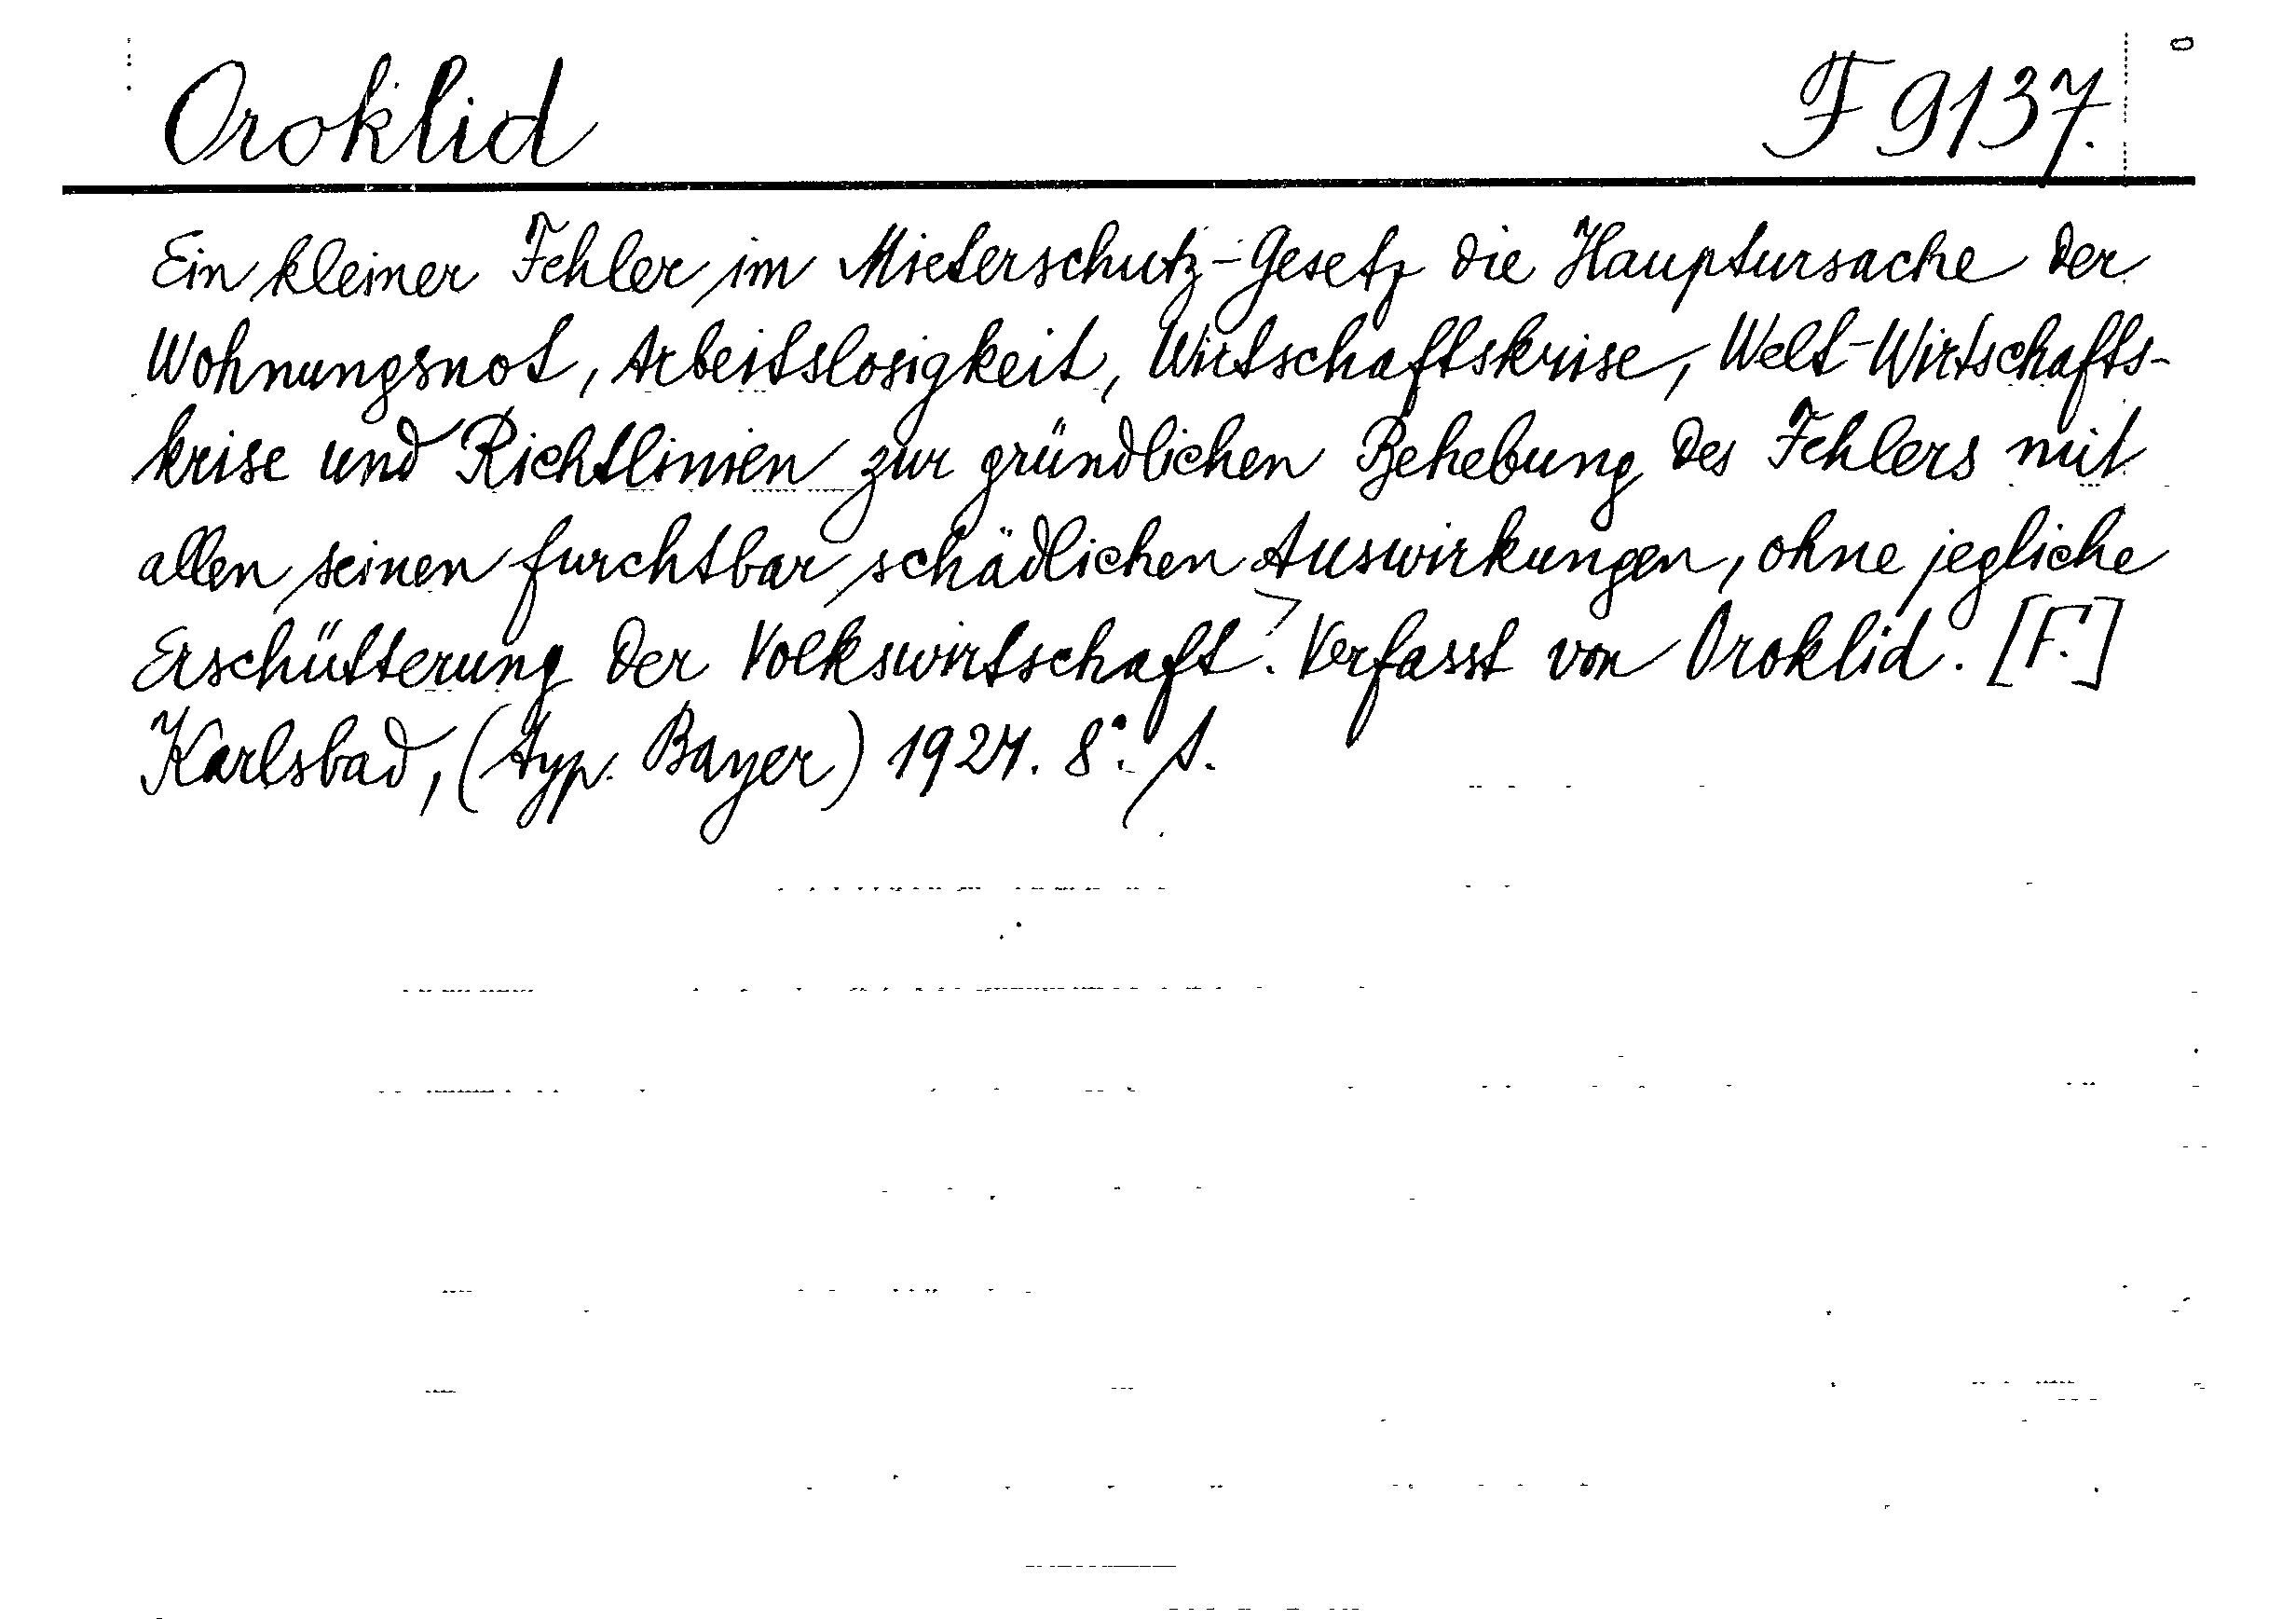 Oroklid F 9137.
Ein kleiner Fehler im Mieterschutz-Gesetz die Hauptursache der
Wohnungsnot, Arbeitslosigkeit, Wirtschaftskrise, Welt-Wirtschafts-
krise und Richtlinien zur gründlichen Behebung des Fehlers mit
allen seinen furchtbar schädlichen Auswirkungen, ohne jegliche
Erschütterung der Volkswirtschaft. Verfasst von Oroklid. [F.]
Karlsbad, (typ. Bayer) 1927. 8°.